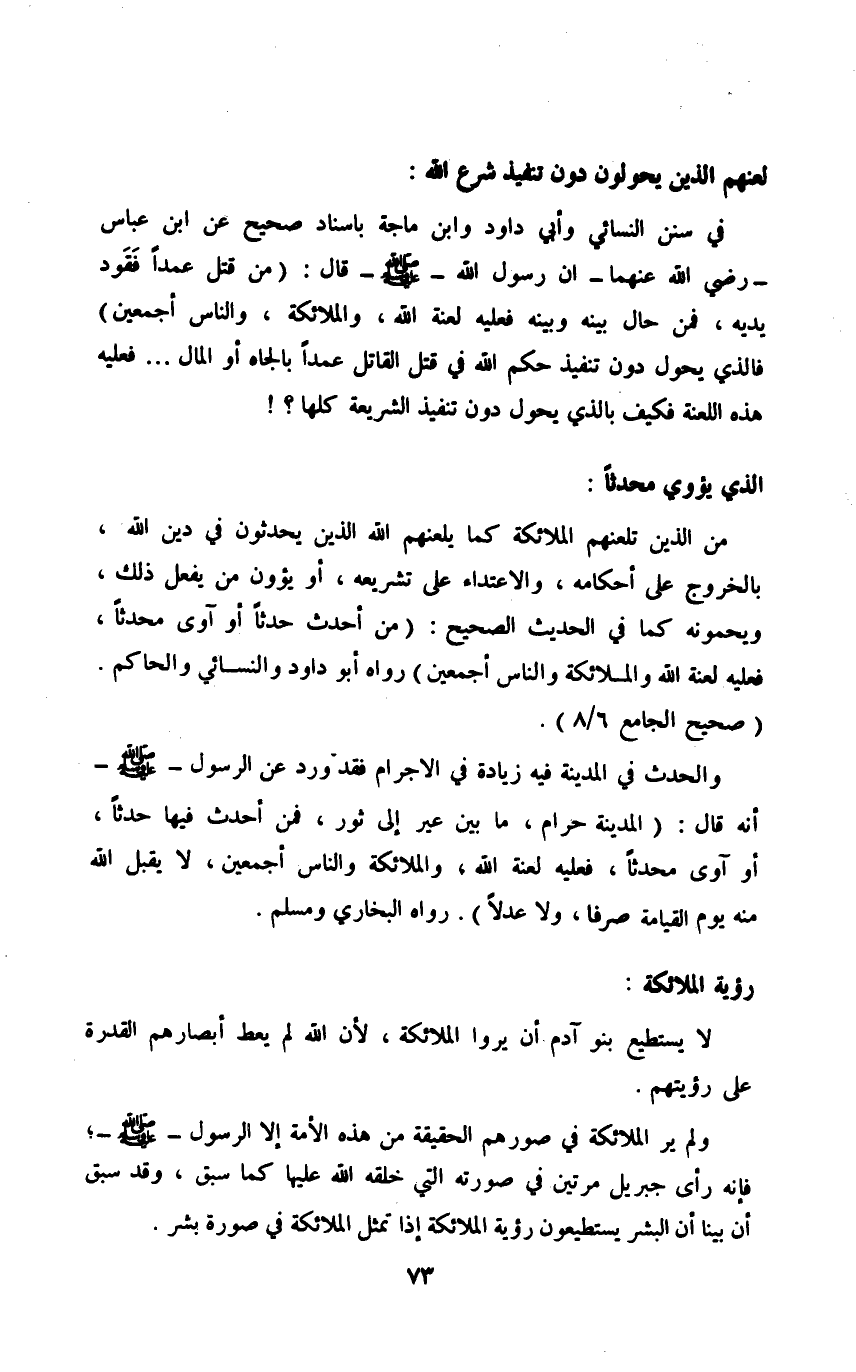 لعنهم الذين يحولون دون تنفيذ شرع الله :
في سنن النسائي وأبي داود وابن ماجة باسناد صحيح عن ابن عباس
ـ رضي الله عنهما ـ ان رسول الله ـ ﷺ ـ قال : ( من قتل عمداً فَقَود
يديه ، فمن حال بينه وبينه فعليه لعنة الله ، والملائكة ، والناس أجمعين )
فالذي يحول دون تنفيذ حكم الله في قتل القاتل عمداً بالجاه أو المال ... فعليه
هذه اللعنة فكيف بالذي يحول دون تنفيذ الشريعة كلها ؟ !
الذي يؤوي محدثاً :
من الذين تلعنهم الملائكة كما يلعنهم الله الذين يحدثون في دين الله ،
بالخروج على أحكامه ، والاعتداء على تشريعه ، أو يؤون من يفعل ذلك ،
ويحمونه كما في الحديث الصحيح : ( من أحدث حدثاً أو آوى محدثاً ،
فعليه لعنة الله والملائكة والناس أجمعين ) رواه أبو داود والنسائي والحاكم .
( صحيح الجامع ٨/٦ ) .
والحدث في المدينة فيه زيادة في الاجرام فقد ورد عن الرسول ـ ﷺ ـ
أنه قال : ( المدينة حرام ، ما بين عير إلى ثور ، فمن أحدث فيها حدثاً ،
أو آوى محدثاً ، فعليه لعنة الله ، والملائكة والناس أجمعين ، لا يقبل الله
منه يوم القيامة صرفا ، ولا عدلاً ) . رواه البخاري ومسلم .
رؤية الملائكة :
لا يستطيع بنو آدم أن يروا الملائكة ، لأن الله لم يعط أبصارهم القدرة
على رؤيتهم .
ولم ير الملائكة في صورهم الحقيقة من هذه الأمة إلا الرسول ـ ﷺ ـ؛
فإنه رأى جبريل مرتين في صورته التي خلقه الله عليها كما سبق ، وقد سبق
أن بينا أن البشر يستطيعون رؤية الملائكة إذا تمثل الملائكة في صورة بشر .
٧٣